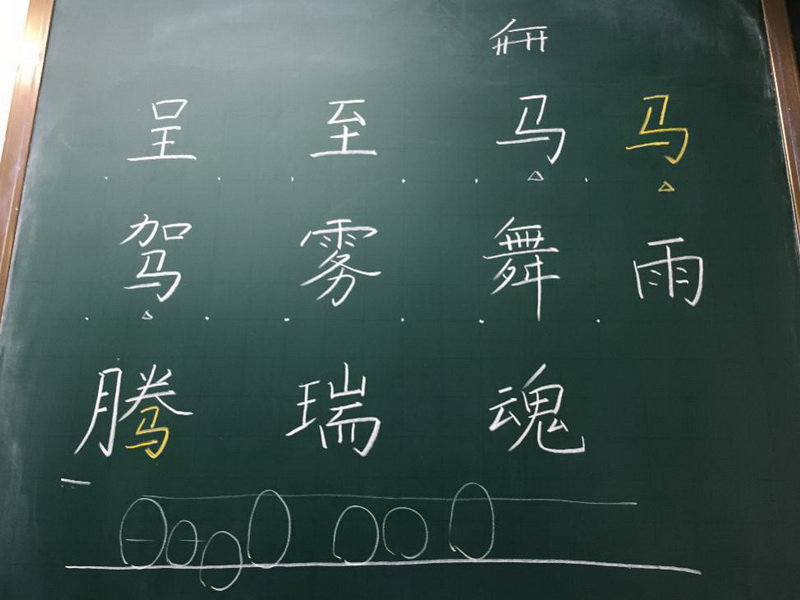 呈 至 马 马
驾 雾 舞 雨
腾 瑞 魂